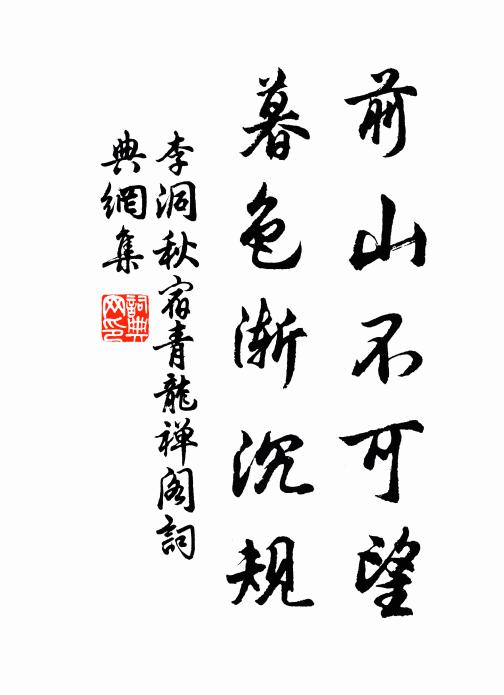 前山不可望
暮色渐沉规
李洞秋宿青龍禅阁詞
典網集
詞典网印